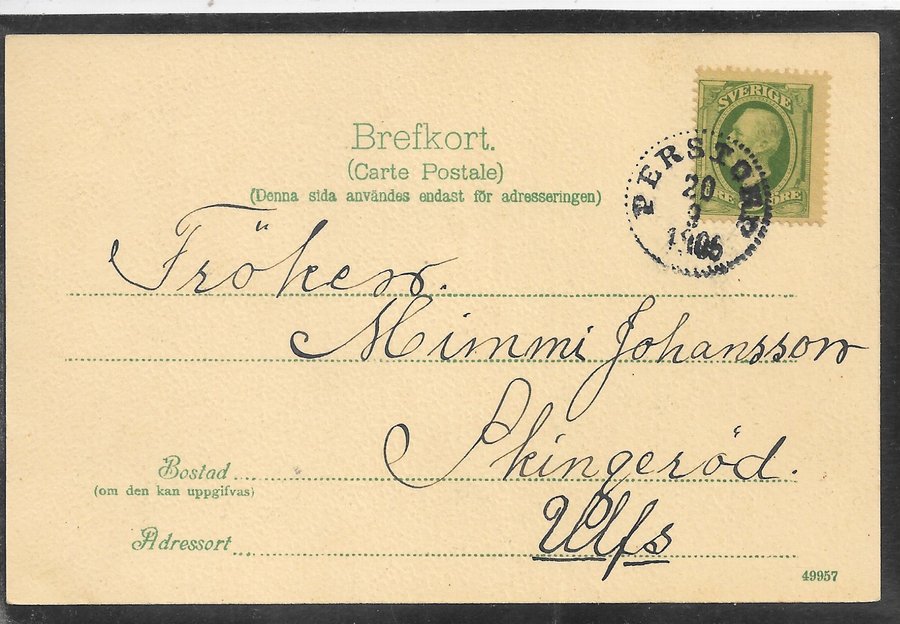 SVERIGE
ÖRE
PERSTORP
20
9
1906
Brefkort.
(Carte Postale)
(Denna sida användes endast för adresseringen)
Fröken.
Mimmi Johansson
Skingeröd.
Bostad
(om den kan uppgifvas)
Ulfs
Adressort
49957